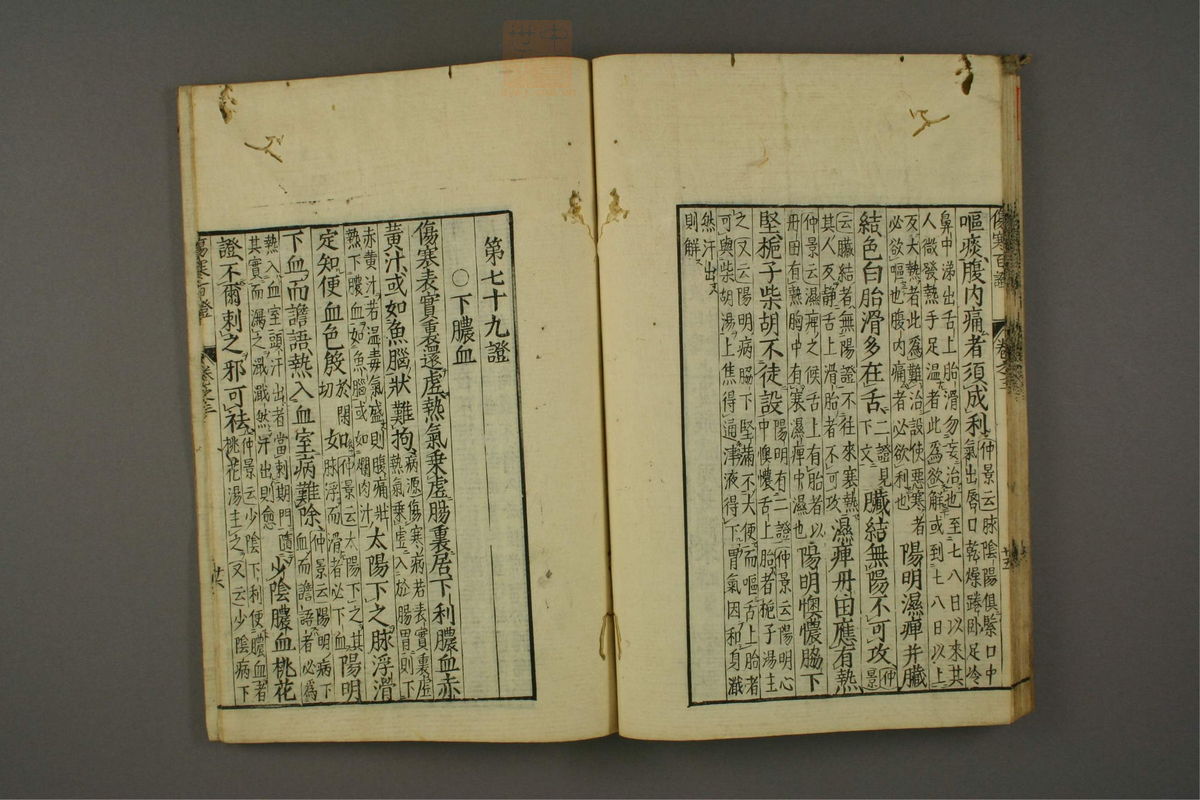 傷寒百證 卷之三 廿五
嘔痰腹内痛者須成利仲景云脉陰陽俱緊口中氣出唇口乾燥踡卧足冷
鼻中涕出舌上胎滑勿妄治也至七八日以來其人微發熱手足温者此爲欲解或到七八日以上
反大熱者此爲難治設使惡寒者必欲嘔也腹内痛者必欲利也陽明濕痺并臓
結色白胎滑多在舌二證見下文臓結無陽不可攻仲景
云臓結者無陽證不往來寒熱其人反静舌上滑胎者不可攻濕痺丹田應有熱
仲景云濕痺之候舌上有胎者以丹田有熱胸中有寒濕痺中濕也陽明懊憹脇下
堅梔子柴胡不徒設陽明有二證仲景云陽明心中懊憹舌上胎者梔子湯主
之又云陽明病脇下堅滿不大便而嘔舌上胎者可與柴胡湯上焦得通津液得下胃氣因和身濈
然汗出則解
第七十九證
○下膿血
傷寒表實裏還虛熱氣乗虛腸裏居下利膿血赤
黄汁或如魚腦狀難拘病源傷寒病若表實裏虛熱氣乗虛入於腸胃則下
赤黄汁若温毒氣盛則腹痛壯熱下膿血如魚腦或如爛肉汁太陽下之脉浮滑
定知便血色殷於閑切如仲景云太陽下之其脉浮而滑者必下血陽明
下血而譫語熱入血室病難除仲景云陽明病下血而譫語者必爲
熱入血室頭汗出者當刺期門隨其實而瀉之濈濈然汗出則愈少陰膿血桃花
證不爾刺之邪可袪仲景云少陰下利便膿血者桃花湯主之又云少陰病下
傷寒百證 卷之三 廿六